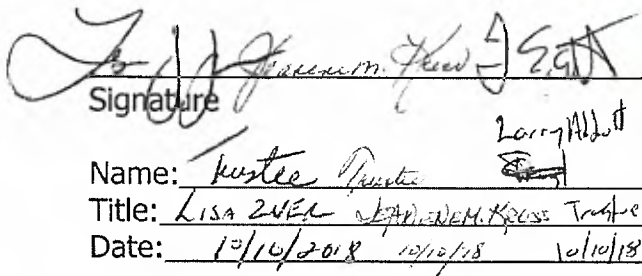 Jeanene M.
Signature
Larry Abbott
Name: Trustee Trustee
Title: LISA ZUER JEANENE M. KRUSS Trustee
Date: 10/10/2018 10/10/18 10/10/18